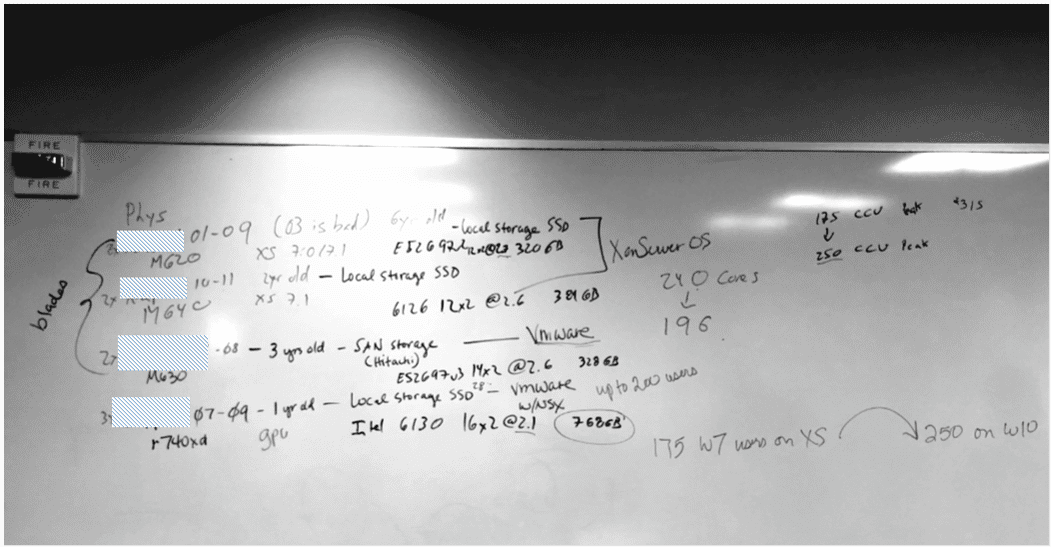 FIRE
FIRE
Phys
01-09 (03 is bad) 6yr old - local storage SSD
M620 XS 7.0/7.1 E52697v2 12x2 @2.7 320GB
10-11 2yr old - Local storage SSD
XS 7.1 6126 12x2 @2.6 384GB
blades
XenServer OS
240 Cores
↓
196
175 CCU Peak
↓
250 CCU Peak
-08 - 3 yrs old - SAN storage — Vmware
(Hitachi)
M630 E52697v3 14x2 @2.6 328GB
07-09 - 1yr old - Local storage SSD - Vmware up to 200 users
w/NSX
r740xd gpu Intel 6130 16x2 @2.1 768GB
175 W7 users on XS
250 on W10